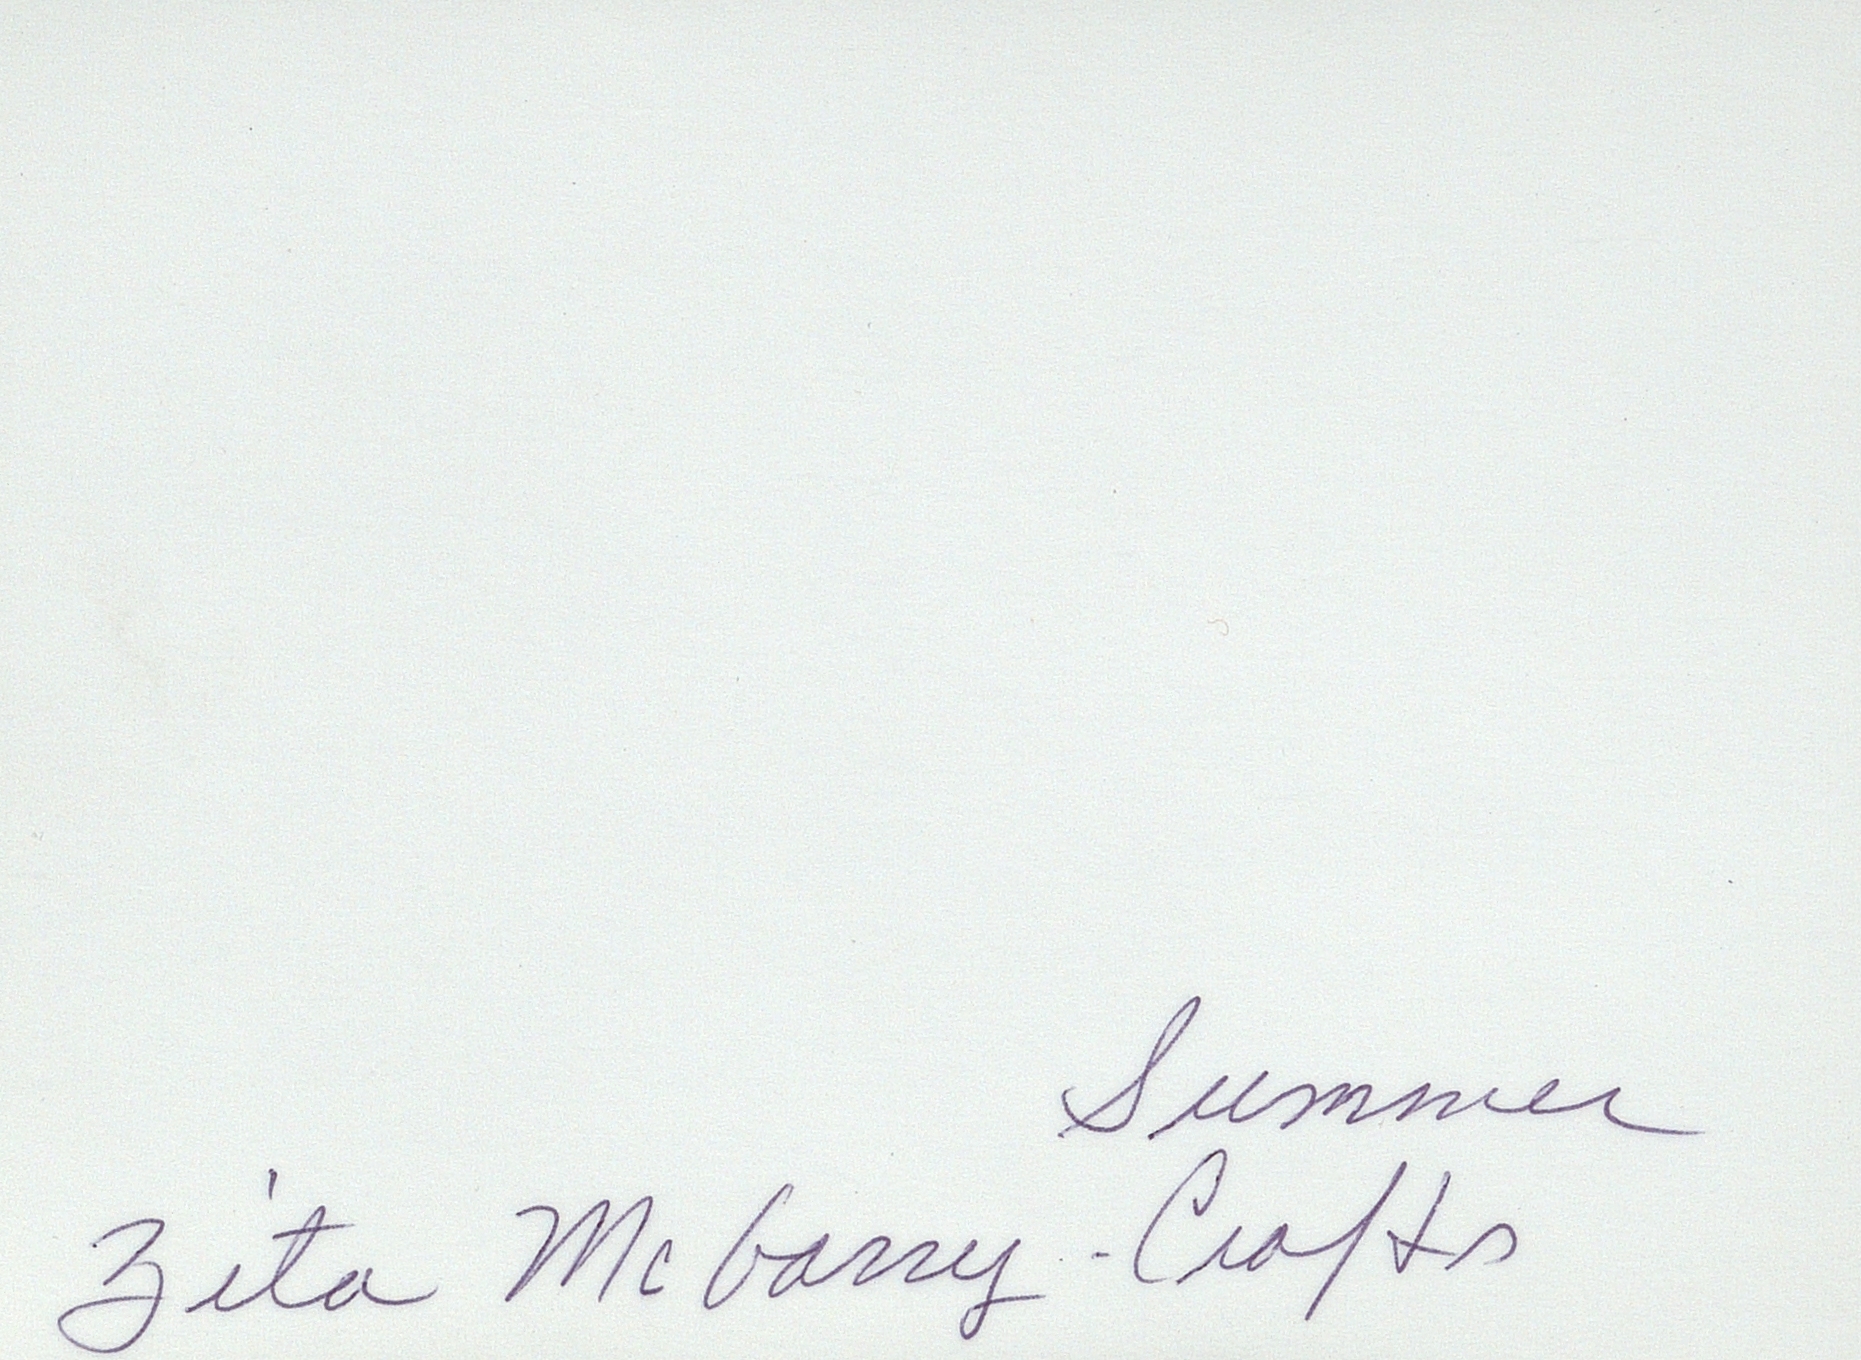 Summer
Zita McGarry - Crafts